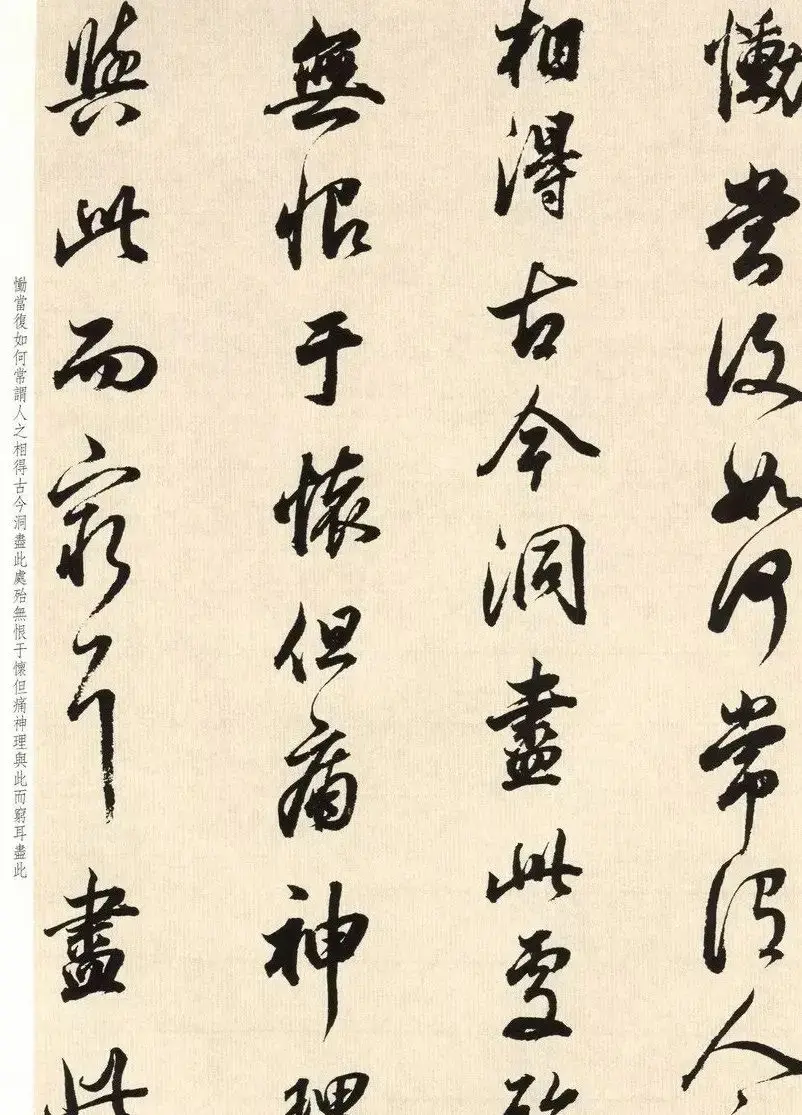 慟當復如何常謂人之
相得古今洞盡此處殆
無恨于懷但痛神理
與此而窮耳盡此
慟當復如何常謂人之相得古今洞盡此處殆無恨于懷但痛神理與此而窮耳盡此